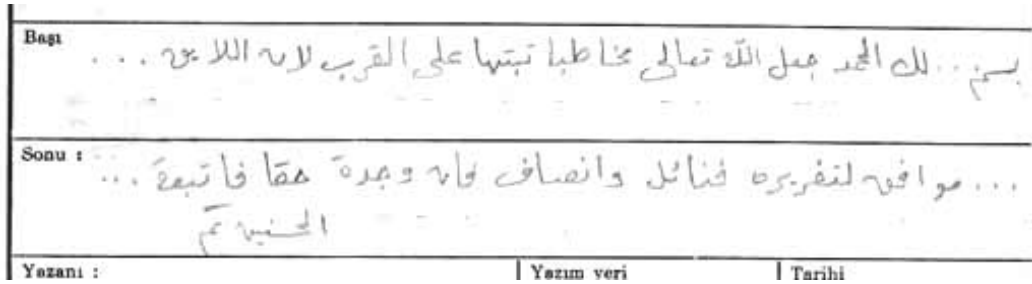 Başı
بسم... لك الحمد جعل الله تعالى مخاطبا تبتها على القرب لان اللايق ...
Sonu :
... موافق لتقريره فتأمل وانصاف فان وجدة حقا فاتبعة ...
تم
Yazanı : Yazım yeri Tarihi